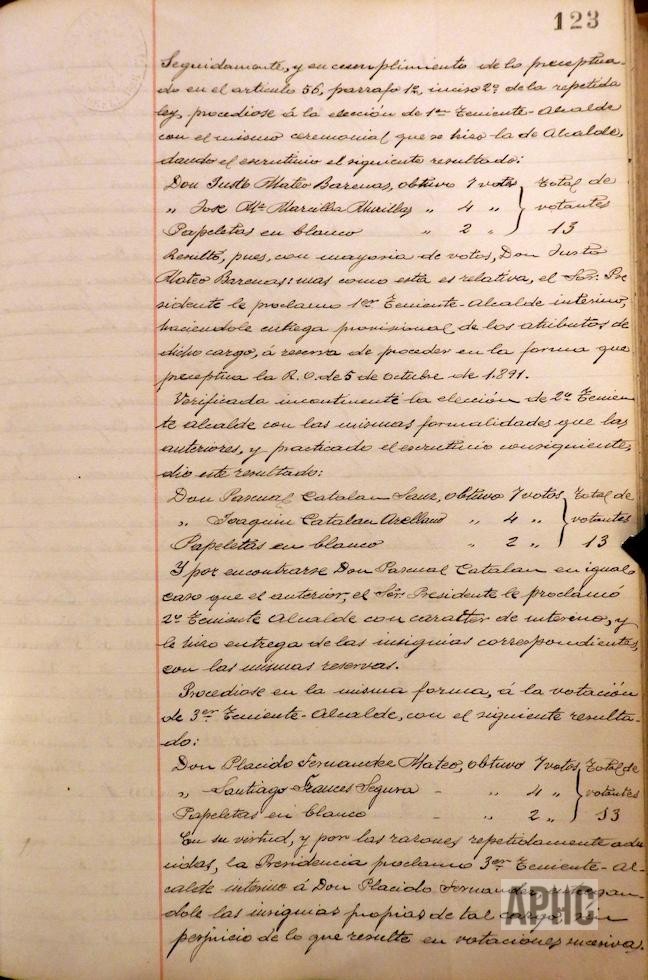 123
Seguidamente, y en cumplimiento de lo preceptua-
do en el artículo 56, parrafo 1º, inciso 2º de la repetida
ley, procediose á la elección de 1er Teniente-Alcalde
con el mismo ceremonial que se hizo la de Alcalde,
dando el escrutinio el siguiente resultado:
Don Justo Mateo Barenas, obtuvo 7 votos } Total de
" Jose Mª Marcilla Murillas " 4 " } votantes
Papeletas en blanco " 2 " } 13
Resultó, pues, con mayoria de votos, Don Justo
Mateo Barenas: mas como esta es relativa, el Sor. Pre
sidente le proclamo 1er Teniente-Alcalde interino,
haciendole entrega provisional de los atributos de
dicho cargo, á reserva de proceder en la forma que
preceptua la R.O. de 5 de Octubre de 1.891.
Verificada incontinenté la elección de 2º Tenien
te alcalde con las mismas formalidades que las
anteriores, y practicado el escrutinio consiguiente,
dio este resultado:
Don Pascual Catalan Sanz, obtuvo 7 votos } Total de
" Joaquin Catalan Arellano " 4 " } votantes
Papeletas en blanco " 2 " } 13
Y por encontrarse Don Pascual Catalan en igual
caso que el anterior, el Sor. Presidente le proclamó
2º Teniente Alcalde con carater de interino, y
le hizo entrega de las insignias correspondientes,
con las mismas reservas.
Procediose en la misma forma, á la votación
de 3er Teniente-Alcalde, con el siguiente resulta-
do:
Don Placido Fernandez Mateo, obtuvo 7 votos } Total de
" Santiago Frances Segura - " 4 " } votantes
Papeletas en blanco - " 2 " } 13
En su virtud, y por las razones repetidamente adu
cidas, la Presidencia proclamo 3er Teniente-Al-
calde interino á Don Placido Fernandez, entregan-
dole las insignias propias de tal cargo, sin
perjuicio de lo que resulte en votaciones sucesivas.
APHC